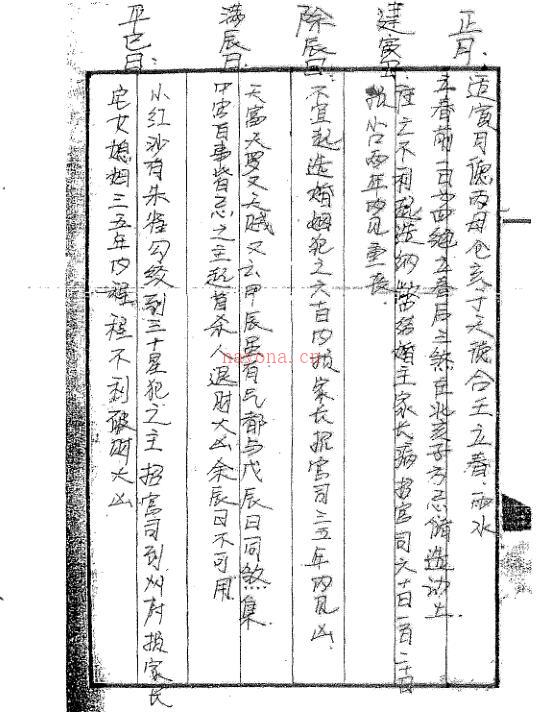 正月:
适寅月德丙母仓亥子天德合壬立春雨水
立春前一日为四绝立春后三煞在北亥子方忌修造动土
建寅日:
往亡不利起造纳婚结婚主家长病招官司六十日一百二十日
损小口两年内见重丧
除卯日
不宜起造婚姻犯之六十日内损家长招官司三五年内见凶
满辰日
天富天罗又天贼又云甲辰虽有气都与戊辰日同煞集
中宫百事皆忌之主起首杀人退财大凶余辰日不可用
平巳日:
小红沙有朱雀勾绞到三十星犯之主招官司到州府损家长
宅女媳妇三五年内程程不利破财大凶
nayona.cn